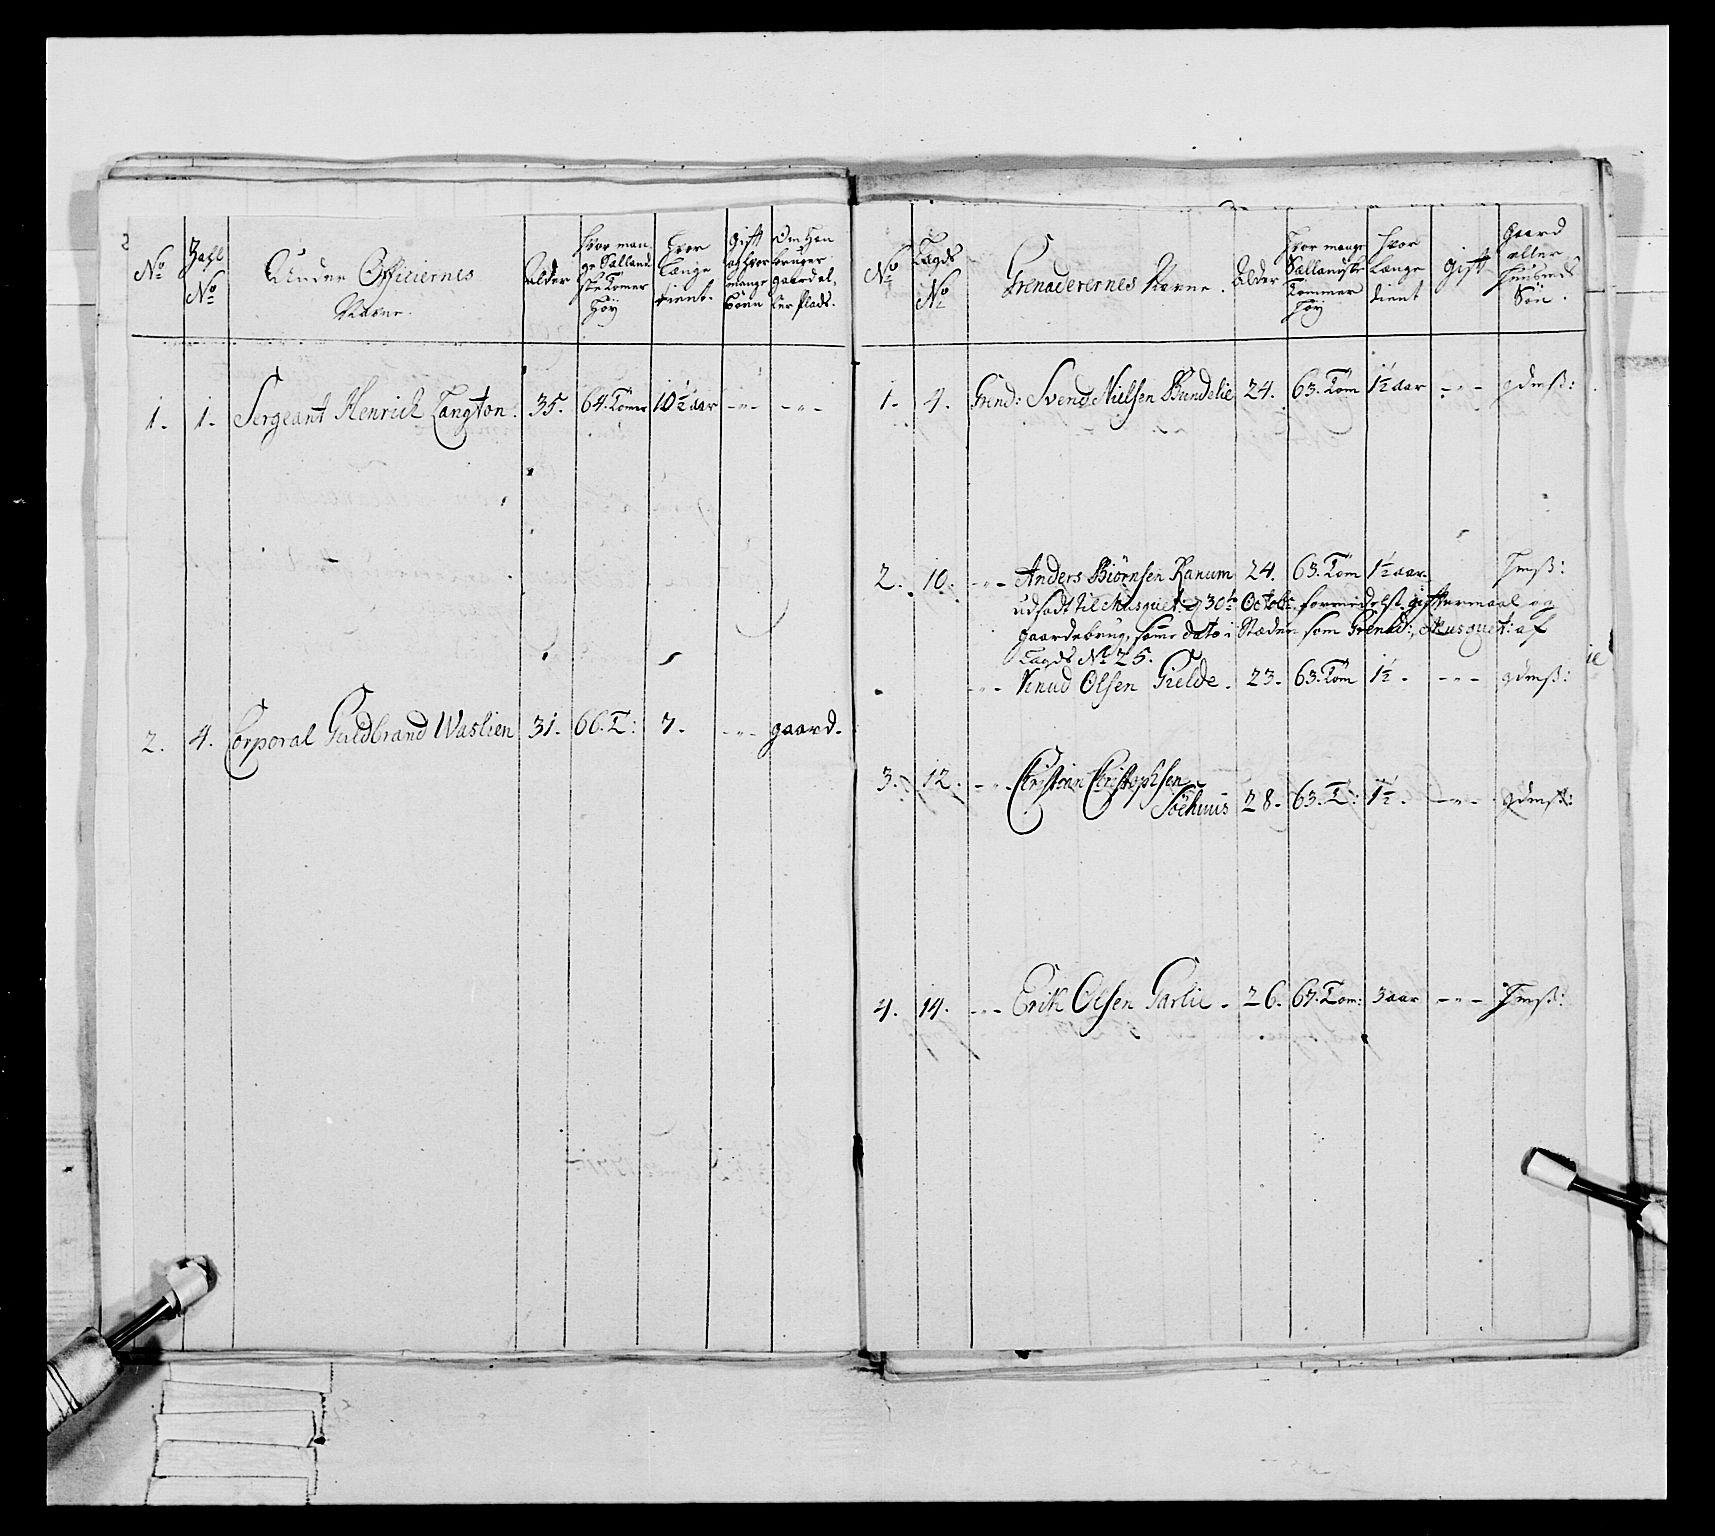 No
Zahl No
Under Officiernes Navne.
alder
Hvor mange Sællandske Tomer Høy
Hvor Længe tient.
gift og hvor mange Börn
Om Han bruger gaard eller Plads.
1. 1. Sergeant Henrich Langton. 35. 64. Tomer 10½ aar -"- -"-
2. 4. Corporal Guldbrand Waslien 31. 66. T: 7. -"- gaard.
No
Lægds No
Grenaderernes Navne.
Alder
Hvor mange Sællandske Tommer Høy
Hvor Længe dient
gift
Gaard eller Huusmds Søn.
1. 4. Grend: Svend Nielsen Bundelie 24. 63. Tom 1½ aar -"- gdmß:
2. 10. -"- Anders Biörnsen Ranum 24. 63. Tom 1½ aar. Hmß:
udsadt til Musquet: d 30te Octobr formedelst gifftermaal og
gaardebrug, samme dato i Stæden som Grenad:, Musquet: af
Lægds No 25.
-"- Knud Olsen Gielde. 23. 63. Tom 1½. -"- gdmß:
3. 12. -"- Christian Christophsen
Söehuus 28. 63. T: 1½. -"- gdmß:
4. 14. -"- Erik Olsen Garlie. 26. 67. Tom: 3 aar -"- Hmß: